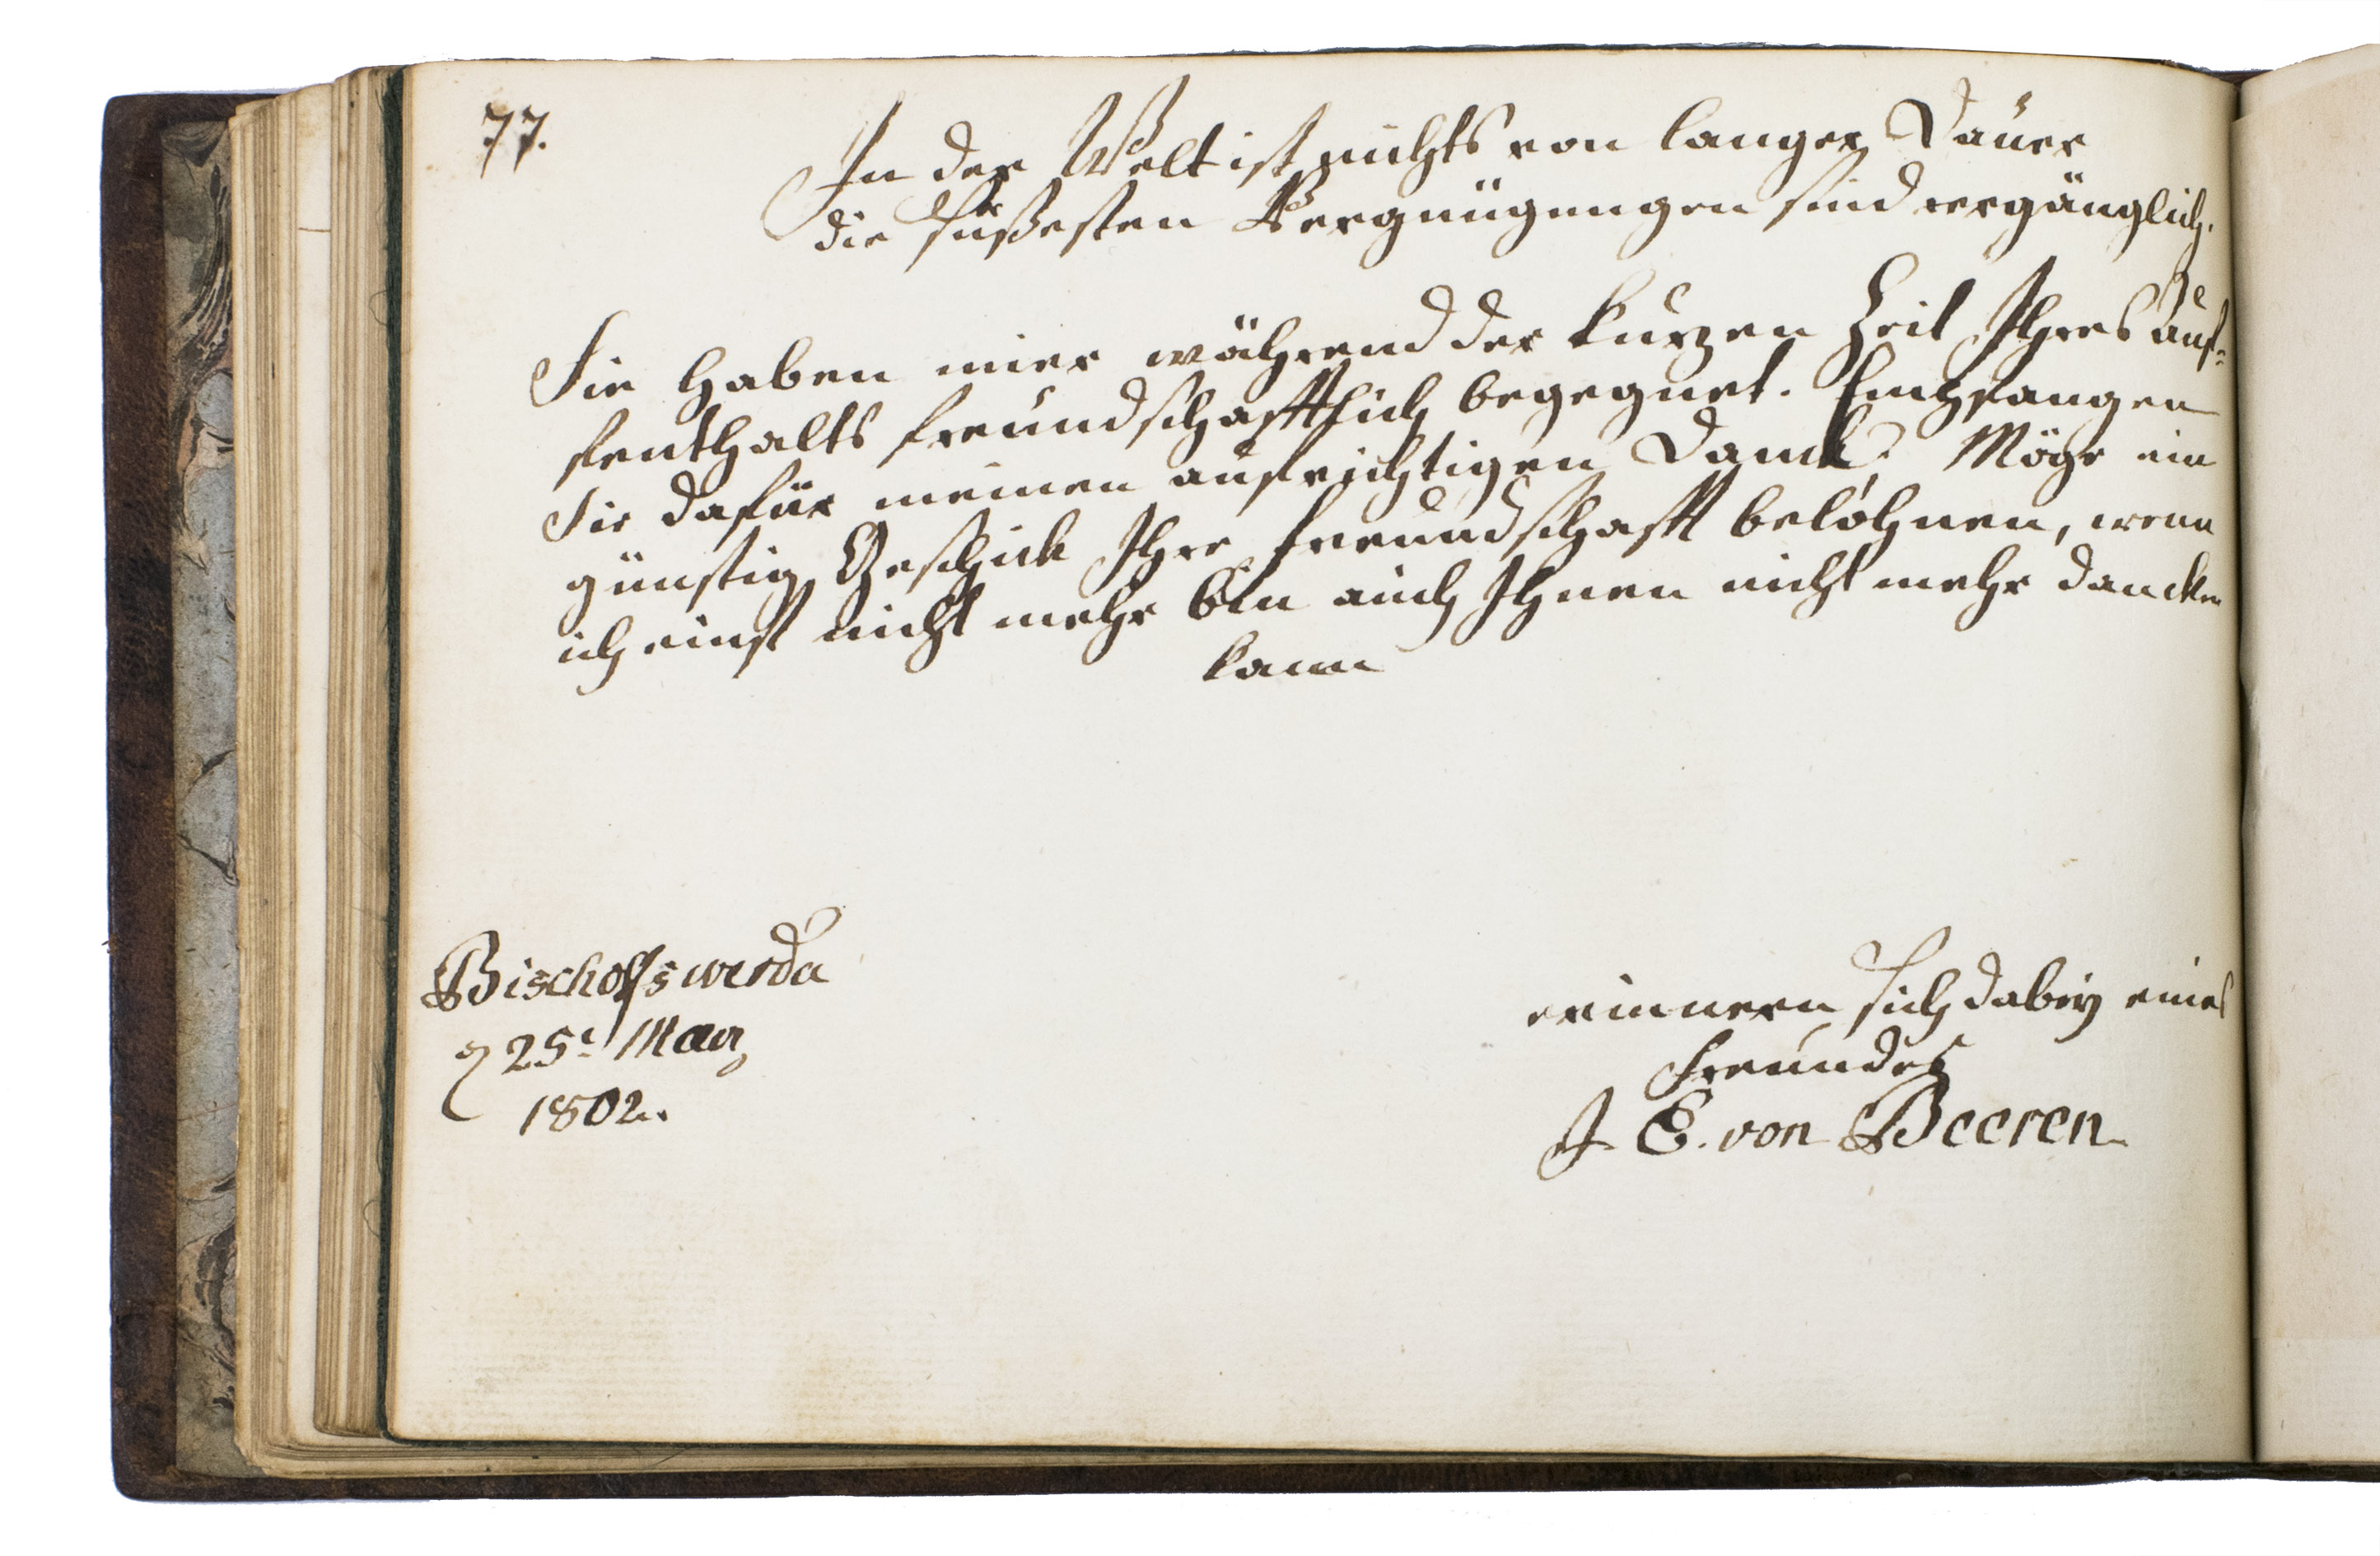 77.
In der Welt ist nichts von langer Dauer
die süßesten Vergnügungen sind vergänglich.
Sie haben mier während der kurzen Zeit Ihres Auf-
fenthalts freundschafftlich begegnet. Empfangen
Sie dafür meinen aufrichtigen Danck. Möge ein
günstig Geschick Ihre Freundschafft belohnen, wenn
ich einst nicht mehr bin auch Ihnen nicht mehr dancken
kann
Bischoffswerda
25t May
1802.
erinnern sich dabey eines
Freundes
J. E. von Beeren